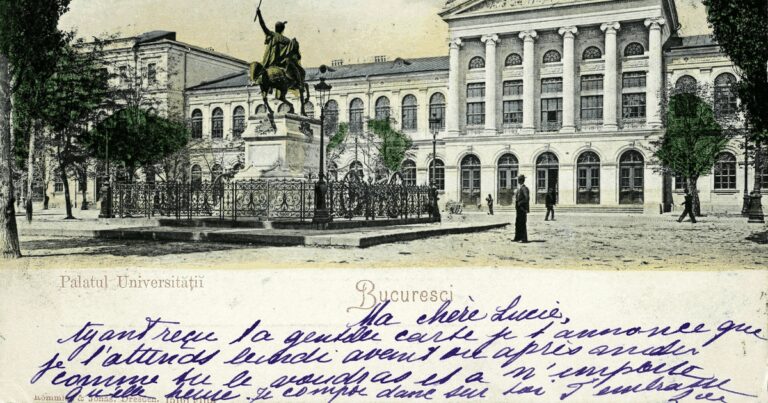 Palatul Universității
Bucuresci
Ma chère Lucie,
Ayant reçu ta gentille carte je t'annonce que
je t'attends lundi avant ou après midi
comme tu le voudras et a n'importe
quelle heure. Je compte donc sur toi. J'embrasse
& Jonas, Dresden.